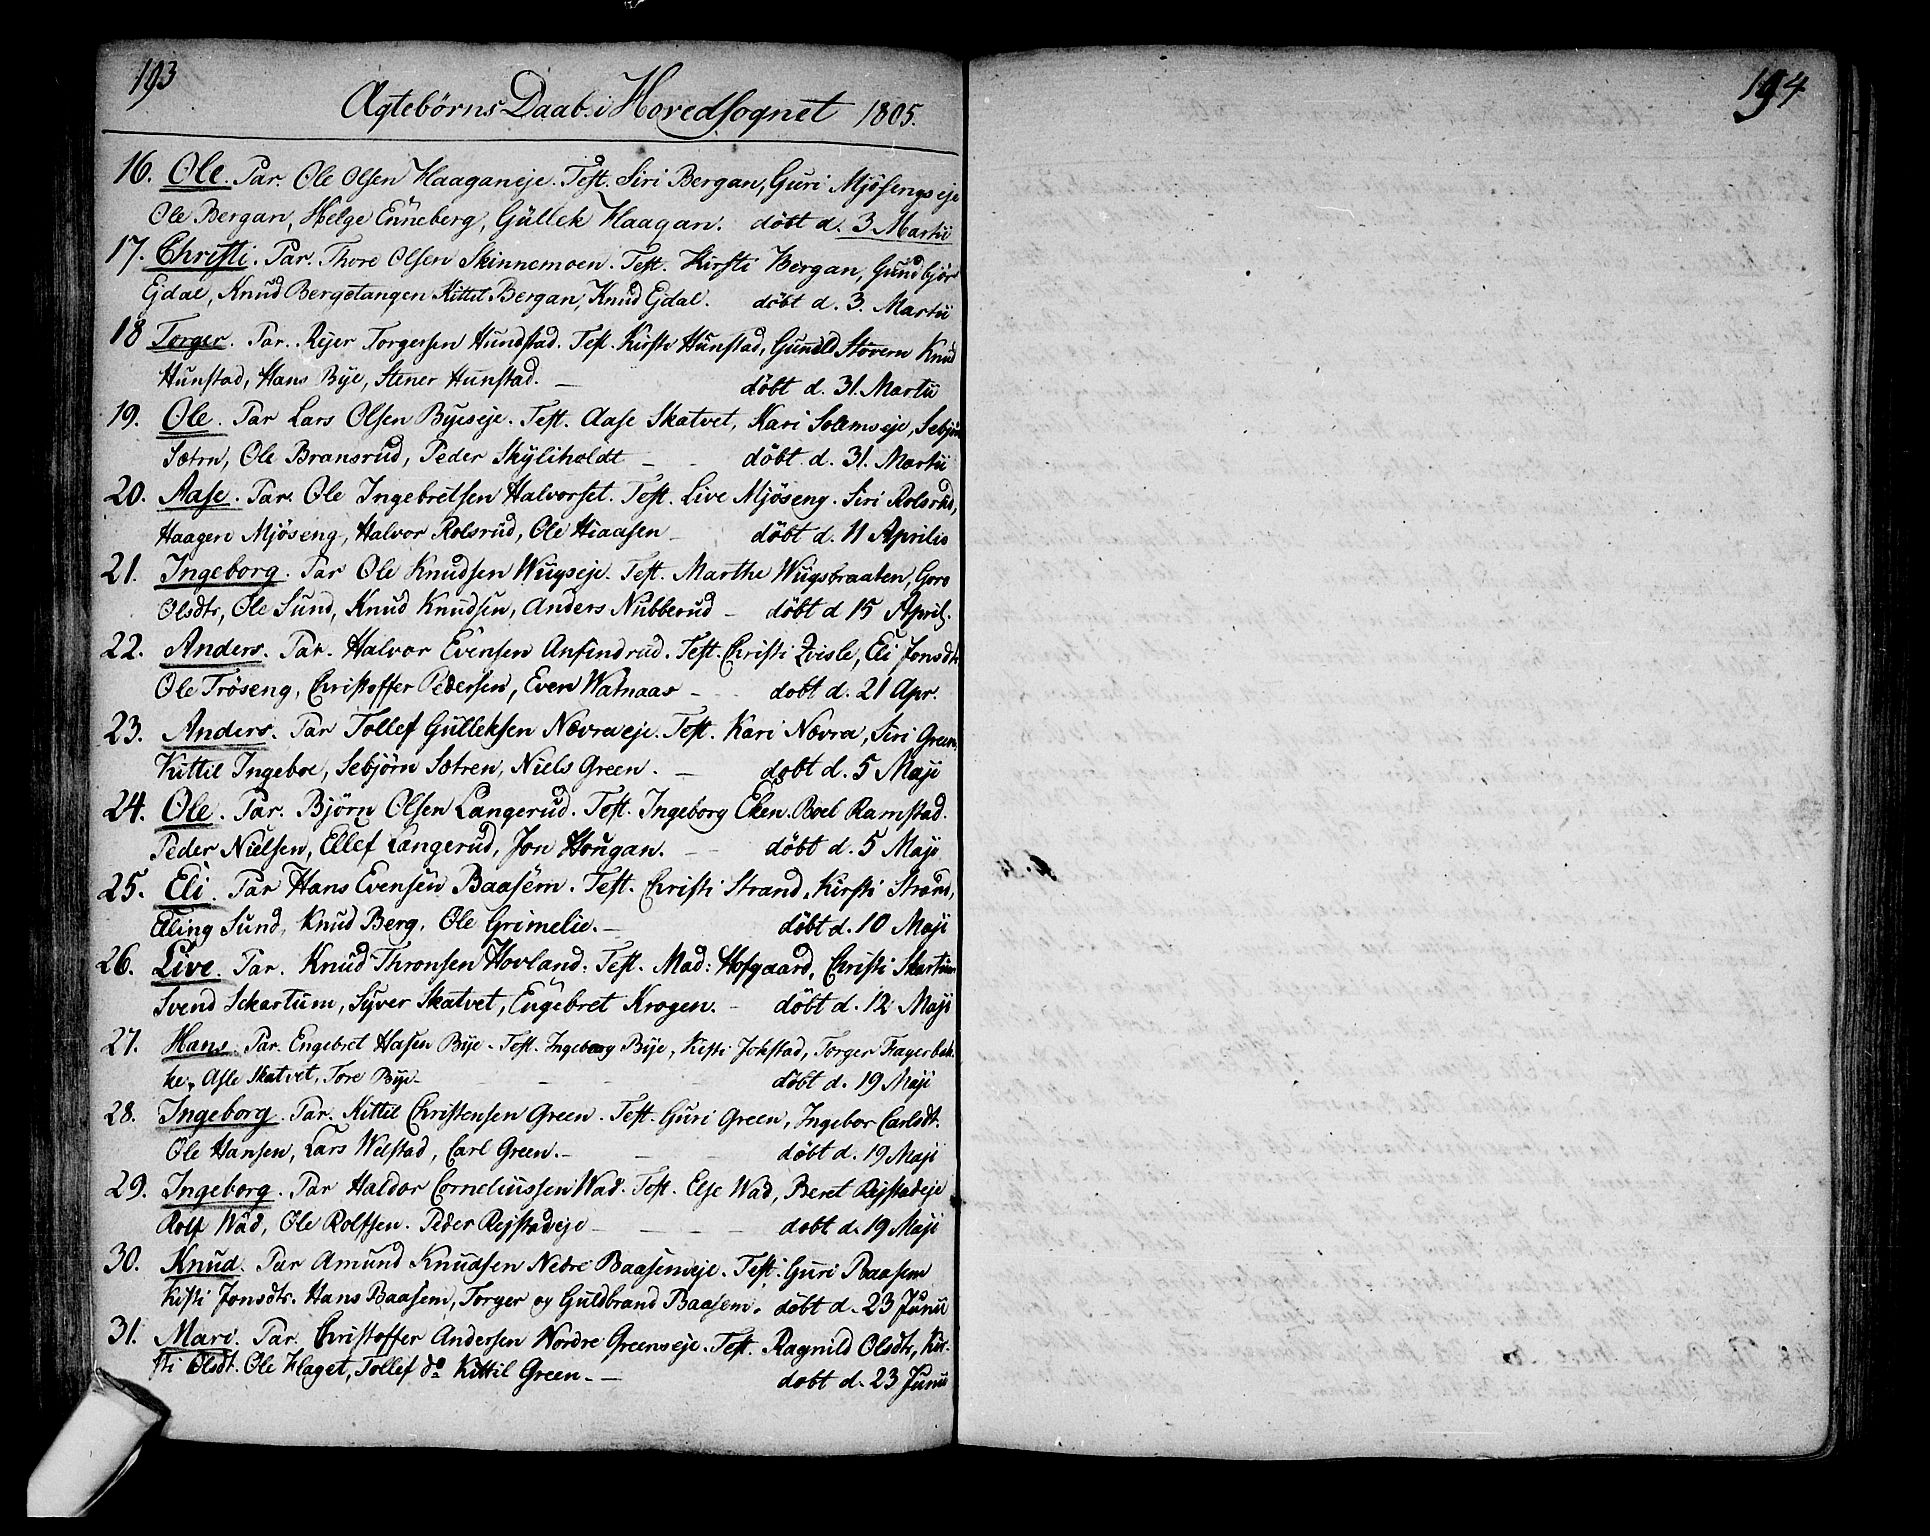 193
Ægtebörns Daab i Hovedsognet 1805.
16. Ole. Par. Ole Olsen Haaganeje. Test. Siri Bergan, Guri Mjösengseje
Ole Bergan, Helge Enneberg, Güllek Haagan. döbt d. 3 Martii
17. Christi. Par. Thore Olsen Skinnemoen. Test. Kirsti Bergan, Gundbjör
Ejdal, Knud Bergstangen Kittil Bergan, Knud Ejdal. döbt d. 3. Martii
18 Torger. Par. Rejer Torgersen Hundstad. Test. Kirsti Hunstad, Gunild Stövern Knud
Hunstad, Hans Bye, Stener Hunstad. — döbt d. 31. Martii
19. Ole. Par Lars Olsen Byeseje. Test. Aase Skatvet, Kari Solemseje, Sebjörn
Sætrn, Ole Bransrud, Peder Skyliholdt — döbt d. 31. Martii
20. Aase. Par. Ole Ingebretsen Halvorset. Test. Live Mjöseng. Siri Rolsrud,
Haagen Mjöseng, Halvor Rolsrud, Ole Hiaasen döbt d. 11 Aprilis
21. Ingeborg. Par Ole Knudsen Wugseje. Test. Marthe Wugsbraaten, Goro
Olsdtr, Ole Sund, Knud Knudsen, Anders Nubberud — döbt d 15 April.
22. Anders. Par. Halvor Evensen Anfindrud. Test. Christi Qvisle, Eli Jonsdtr
Ole Tröseng, Christoffer Pedersen, Even Watnaas — dobt d. 21 Apr.
23. Anders. Par Tollef Gulleksen Nævraeje. Test. Kari Nævra, Siri Green,
Kittil Ingeboe, Sebjörn Sætren, Niels Green. — dobt d. 5 Maji
24. Ole. Par. Björn Olsen Langerud. Test. Ingeborg Eken. Boel Ramstad.
Peder Nielsen, Ellef Langerud, Jon Hougan. — döbt d. 5 Maji
25. Eli. Par Hans Evensen Baasem. Test. Christi Strand, Kirsti Strand,
Elling Sund, Knud Berg, Ole Grimelie. — döbt d. 10 Maji
26. Live. Par. Knud Thronsen Hovland. Test. Mad: Hofgaard, Christi Skartum
Svend Sckartum, Syver Skatvet, Engebret Krogen. — döbt d. 12 Maji
27. Hans. Par. Engebret Hasen Bye. Test. Ingeborg Bye, Kisti Jokstad, Torger Fagerbak-
ke, Asle Skatvet, Tore Bye — döbt d. 19 Maji
28. Ingeborg. Par. Kittil Christensen Green. Test. Guri Green, Ingebor Carlsdt.
Ole Hansen, Lars Welstad, Carl Green. — döbt d. 19 Maji
29. Ingeborg. Par Haldor Corneliussen Wad. Test. Else Wad, Beret Rejstadeje
Rolf Wad, Ole Rolfsen. Peder Rejstadeje — dobt d. 19 Maji
30. Knud. Par Amund Knudsen Nedre Baasemeje. Test. Guri Baasem
Kisti Jonsdtr. Hans Baasem, Torger og Guldbrand Baasem. döbt d. 23 Junii
31. Mari. Par. Christoffer Andersen Nordre Greenseje. Test. Ragnild Olsdtr, Kir-
sti Olsdt. Ole Haget, Tollef do Kittil Green. — dobt d. 23 Junii
194